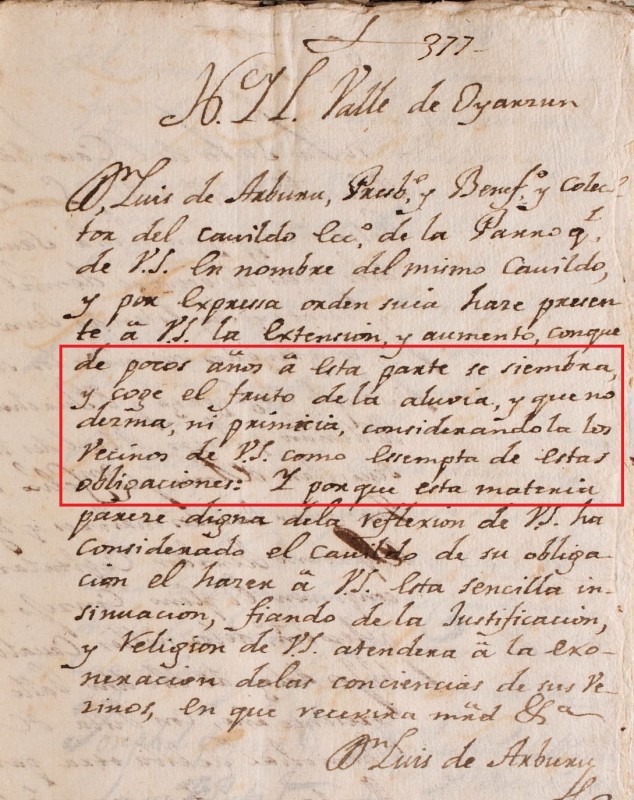 377
N. Y L. Valle de Oyarzun
Dn Luis de Arburu, Presb.o y Benef.o y Colec-
tor del Cavildo Ecc.o de la Parroq.l
de V.S. En nombre del mismo Cavildo,
y por expressa orden suia haze presen
te â V.S. la extension, y aumento, conque
de pocos años â esta parte se siembra,
y coge el fruto de la aluvia, y que no
dezma, ni primicia, considerandola los
Vecinos de V.S. como essempta de estas
obligaciones: Y porque esta materia
parece digna dela reflexion de V.S. ha
Considerado el Cavildo de su obliga
cion el hazer â V.S. esta sencilla in-
sinuacion, fiando de la Justificacion,
y Religion de V.S. atendera â la exo-
neracion delas conciencias de sus Ve-
zinos, en que recevira mrd &a
Dn Luis de Arburu